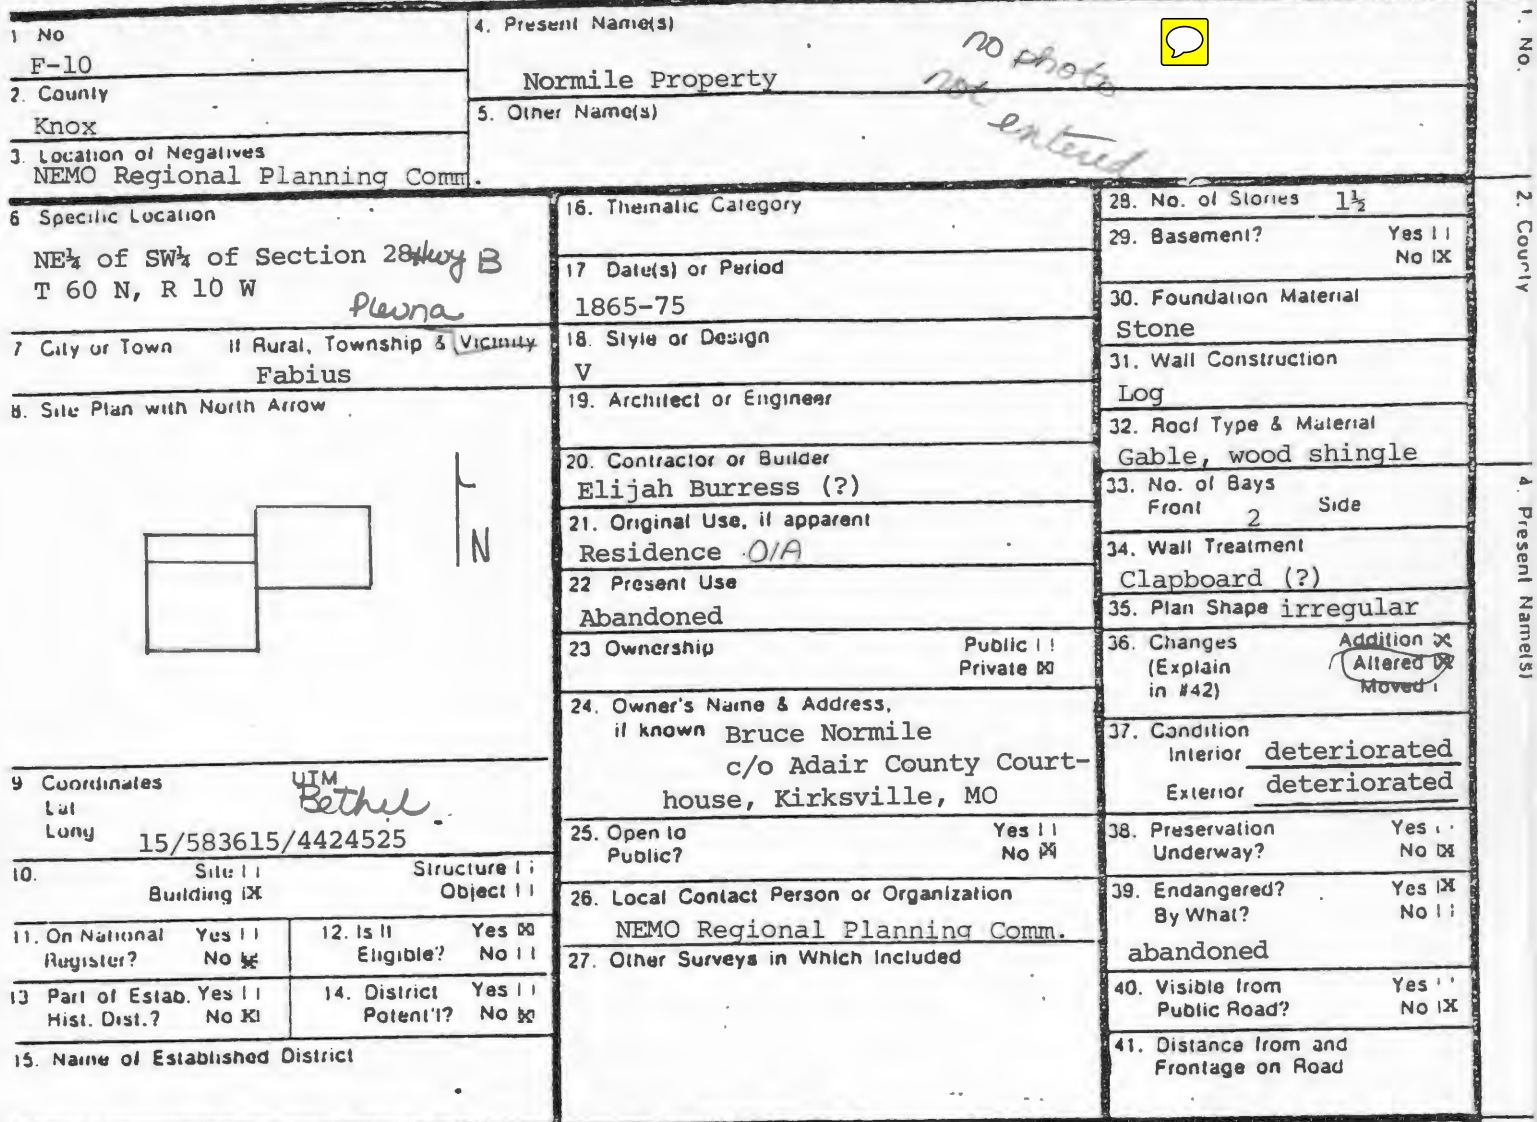 1 No
F-10
2. County
Knox
3. Location of Negatives
NEMO Regional Planning Comm.
4. Present Name(s)
Normile Property
5. Other Name(s)
no photo
not entered
6 Specific Location
NE¼ of SW¼ of Section 28 Hwy B
T 60 N, R 10 W
Plevna
7 City or Town If Rural, Township & Vicinity
Fabius
8. Site Plan with North Arrow
N
9 Coordinates UTM
Lat Bethel
Long 15/583615/4424525
10. Site Structure
Building X Object
11. On National Yes
Register? No X
12. Is It Yes X
Eligible? No
13 Part of Estab. Yes
Hist. Dist.? No X
14. District Yes
Potent'l? No X
15. Name of Established District
16. Thematic Category
17 Date(s) or Period
1865-75
18. Style or Design
V
19. Architect or Engineer
20. Contractor or Builder
Elijah Burress (?)
21. Original Use, if apparent
Residence O/A
22 Present Use
Abandoned
23 Ownership Public
Private X
24. Owner's Name & Address,
if known Bruce Normile
c/o Adair County Court-
house, Kirksville, MO
25. Open to Yes
Public? No X
26. Local Contact Person or Organization
NEMO Regional Planning Comm.
27. Other Surveys in Which Included
28. No. of Stories 1½
29. Basement? Yes
No X
30. Foundation Material
Stone
31. Wall Construction
Log
32. Roof Type & Material
Gable, wood shingle
33. No. of Bays
Front 2 Side
34. Wall Treatment
Clapboard (?)
35. Plan Shape irregular
36. Changes Addition X
(Explain Altered X
in #42) Moved
37. Condition
Interior deteriorated
Exterior deteriorated
38. Preservation Yes
Underway? No X
39. Endangered? Yes X
By What? No
abandoned
40. Visible from Yes
Public Road? No X
41. Distance from and
Frontage on Road
1. No.
2. County
4. Present Name(s)